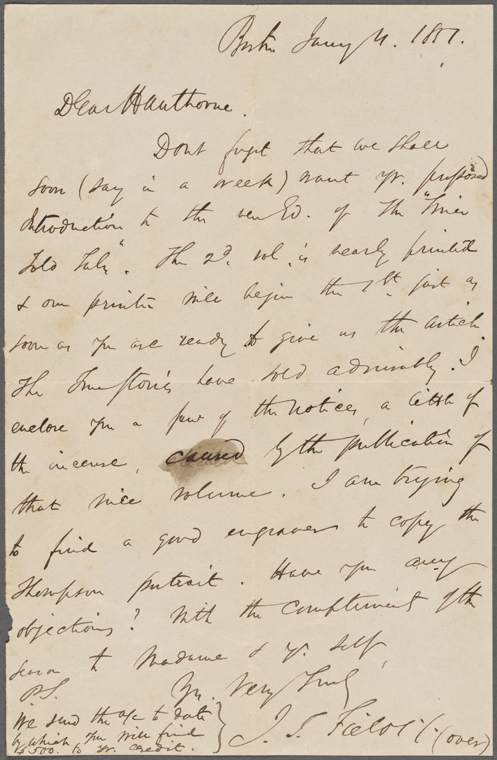 Boston Jany 4. 1851.
Dear Hawthorne.
Dont forget that we shall
soon (say in a week) want yr. proposed
Introduction to the new Ed. of The "Twice
Told Tales". The 2d. vol. is nearly printed
& our printer will begin the 1st. just as
soon as you are ready to give us the article.
The True Stories have sold admirably. I
enclose you a few of the notices, a little of
the incense, caused by the publication of
that nice volume. I am trying
to find a good engraver to copy the
Thompson portrait. Have you any
objections? With the compliments of the
season to Madame & yr. self,
Yrs. Very Truly
J. T. Fields
(over)
P.S.
We send the a/c to date
by which you will find
$500. to yr. credit.